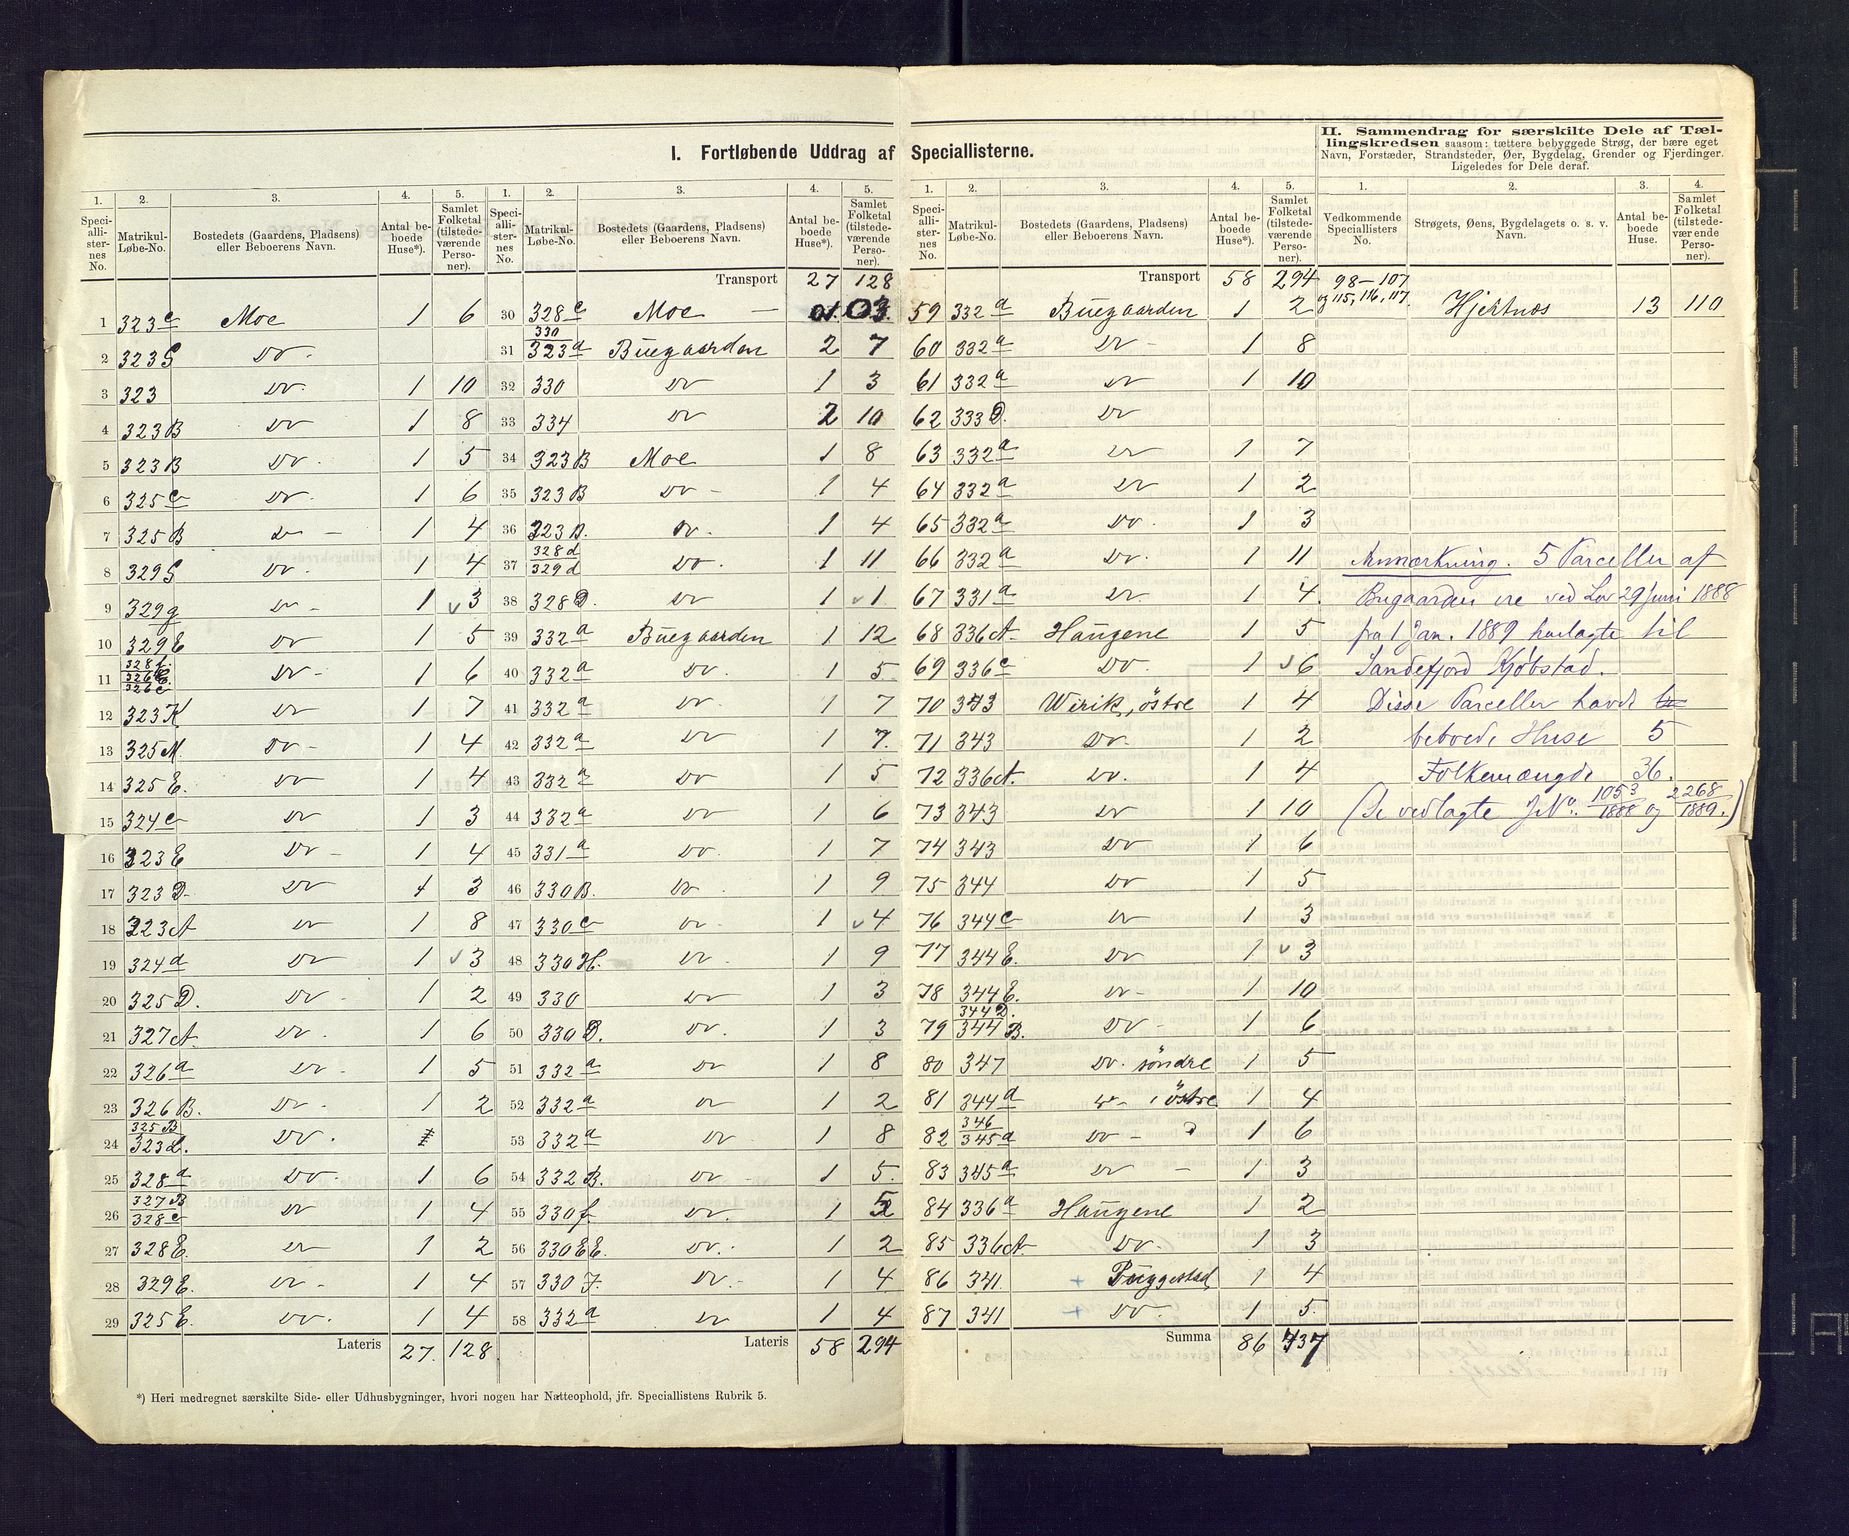 I. Fortløbende Uddrag af Speciallisterne.
1. Speciallisternes No. | 2. Matrikul-Løbe-No. | 3. Bostedets (Gaardens, Pladsens) eller Beboerens Navn. | 4. Antal beboede Huse*). | 5. Samlet Folketal (tilstedeværende Personer).
1 323c Moe 1 6
2 323G Do.
3 323 Do. 1 10
4 323B Do 1 8
5 323B Do. 1 5
6 325c Do. 1 6
7 325B Do - 1 4
8 329G Do. 1 4
9 329g Do - 1 v 3
10 329E Do 1 5
11 328f. 326E. 326c Do - 1 6
12 323K Do 1 7
13 325M. Do - 1 4
14 325E. Do 1 4
15 324c Do 1 3
16 323E Do - 1 4
17 323D. Do 1 3
18 323A Do 1 8
19 324a Do 1 v 3
20 325D. Do - 1 2
21 327A. Do. 1 6
22 326a Do - 1 5
23 326B. Do - 1 2
24 325B 323L. Do.
25 328a Do. 1 6
26 327B 328c Do 1 4
27 328E Do 1 2
28 329E. Do - 1 4
29 325E. Do. 1 4
Lateris 27. 128.
*) Heri medregnet særskilte Side- eller Udhusbygninger, hvori nogen har Natteophold, jfr. Speciallistens Rubrik 5.
1. Speciallisternes No. | 2. Matrikul-Løbe-No. | 3. Bostedets (Gaardens, Pladsens) eller Beboerens Navn. | 4. Antal beboede Huse*). | 5. Samlet Folketal (tilstedeværende Personer).
Transport 27 128
30 328c Moe - 01. 03.
31 330 323a Buegaarden 2 7
32 330 Do 1 3
33 334 Do 2 10
34 323B Moe 1 8
35 323B Do - 1 4
36 323B. Do. 1 4
37 328d 329d Do. 1 11
38 328D. Do 1 v 1
39 332a Buegaarden 1 12
40 332a Do. 1 5
41 332a Do. 1 7
42 332a Do 1 7.
43 332a Do 1 5
44 332a Do 1 6
45 331a Do. 1 7
46 330B. Do. 1 9
47 330c Do. 1 v 4
48 330H. Do. 1 9
49 330 Do 1 3
50 330D. Do. 1 3
51 332a Do 1 8
52 332a Do 1 2
53 332a Do. 1 8
54 332B. Do - 1 5.
55 330f. Do. 1 5
56 330EE. Do. 1 2
57 330J. Do. - 1 4
58 332a Do 1 4
Lateris 58 294
1. Speciallisternes No. | 2. Matrikul-Løbe-No. | 3. Bostedets (Gaardens, Pladsens) eller Beboerens Navn. | 4. Antal beboede Huse*). | 5. Samlet Folketal (tilstedeværende Personer).
Transport 58 294
59 332a Buegaarden 1 2
60 332a Do - 1 8
61 332a Do 1 10
62 333D. Do
63 332a Do 1 7
64 332a Do 1 2
65 332a Do. 1 3
66 332a Do. 1 11
67 331a Do. 1 4.
68 336A. Haugene 1 5
69 336c Do. 1 v 6
70 343 Virik, östre 1 4
71 343 Do. 1 2
72 336A. Do. 1 4
73 343 Do 1 10
74 343 Do 1 6
75 344 Do 1 5
76 344c Do 1 3
77 344E. Do 1 v 3
78 344E. Do - 1 10
79 344D. 344B. Do - 1 6
80 347 Do. söndre 1 5
81 344d Do - , östre 1 4
82 346 345a Do - 1 6
83 345a Do - 1 3
84 336a Haugene 1 2
85 336A Do. 1 3
86 341 + Puggestad 1 4
87 341 + Do. 1 5.
Summa 86 437
II. Sammendrag for særskilte Dele af Tællingskredsen saasom: tættere bebyggede Strøg, der bære eget Navn, Forstæder, Strandsteder, Øer, Bygdelag, Grender og Fjerdinger. Ligeledes for Dele deraf.
1. Vedkommende Speciallisters No. | 2. Strøgets, Øens, Bygdelagets o. s. v. Navn. | 3. Antal beboede Huse. | 4. Samlet Folketal (tilstedeværende Personer).
98 - 107
og 115, 116, 117. Hjertnæs 13 110
Anmærkning. 5 Parceller af
Bugaarden ere ved Lov 29 Juni 1888
fra 1 Jan. 1889 henlagte til
Sandefjord Kjøbstad.
Disse Parceller havde
beboede Huse 5
Folkemængde 36.
(Se vedlagte JNo. 1053/1888 og 2268/1889.)